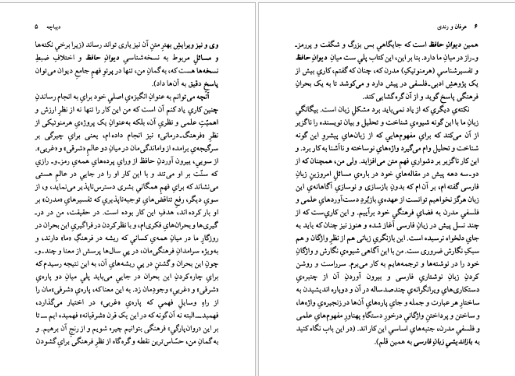 دیباچه ۵
وی و نیز ویرایش بهترِ متنِ آن نیز یاری تواند رساند (زیرا برخی نکته‌ها
و مسائلِ مربوط به نسخه‌شناسیِ دیوانِ حافظ و اختلافِ ضبطِ
نسخه‌ها هست که، به‌گمانِ من، تنها در پرتوِ فهمِ جامعِ دیوان می‌توان
پاسخ دقیق به آن‌ها داد).
آنچه می‌توانم به عنوانِ انگیزه‌ی اصلیِ خود برای به انجام رساندنِ
چنین کاری یاد کنم آن است که من این کار را تنها نه از نظرِ ارزش و
اهمیتِ علمی و نظریِ آن، بلکه به‌عنوانِ یک پروژه‌ی هرمنوتیکی از
نظرِ «فرهنگ‌درمانی» نیز انجام داده‌ام، یعنی برای چیرگی بر
سرگیجه‌ی برآمده از واماندگی‌مان در میانِ دو عالمِ «شرقی» و «غربی».
از سویی، بیرون آوردنِ حافظ از ورایِ پرده‌های همه‌ی رمز-و-رازی
که سنّت بر او می‌تند و با این کار او را در جایی در عالمِ هستی
می‌نشاند که برای فهمِ همگانیِ بشری دسترس‌ناپذیر می‌نماید، و، از
سوی دیگر، رفعِ تناقض‌های توجیه‌ناپذیری که تفسیرهای «مدرن» بر
او بار کرده اند، هدفِ این کار بوده است. در حقیقت، من در در-
گیری‌ها و بحران‌های فکری‌ام، و با نظر کردن در فراگیری این بحران در
روزگارِ ما در میانِ همه‌ی کسانی که ریشه در فرهنگِ «ما» دارند، و
به‌ویژه سرامدانِ فرهنگی‌مان، در پیِ سال‌ها پرسش از معنا و چند-و-
چونِ این بحران و گشتن در پیِ ریشه‌های آن، به این نتیجه رسیدم که
برای چاره‌کردنِ این بحران در جایی می‌باید پلی میانِ دو پاره‌یِ
«شرقی» و «غربی» وجودمان زد. به این معنا که، پاره‌یِ «شرقی»مان را
از راهِ وسایلِ فهمی که پاره‌یِ «غربی» در اختیار می‌گذارد،
بفهمیم—البته نه آن‌گونه که در این یک قرن «شرقیانه» فهمیده ایم— تا
بر این «روان‌پارگی» فرهنگی بتوانیم چیره شویم و از رنجِ آن برهیم. و
به گمانِ من، حسّاس‌ترین نقطه و گره‌گاه از نظرِ فرهنگی برای گشودن
۶ عرفان و رندی
همین دیوان حافظ است که جایگاهی بس بزرگ و شگفت و پررمز-
و-راز در میانِ ما دارد. بنا بر این، این کتاب پلی ست میانِ دیوانِ حافظ
و تفسیرشناسیِ (هرمنوتیکِ) مدرن که، چنان که گفتم، کاری بیش از
یک پژوهشِ ادبی-فلسفی در پیش دارد و می‌کوشد تا به یک بحرانِ
فرهنگی پاسخ گوید و از آن گره‌گشایی کند.
نکته‌ی دیگری که از یاد نمی‌باید برد مشکلِ زبان است. بیگانگیِ
زبانِ ما با این گونه شیوه‌ی شناخت و تحلیل و بیان نویسنده را ناگزیر
از آن می‌کند که برای مفهوم‌هایی که از زبان‌های پیشروِ این گونه
شناخت و تحلیل وام می‌گیرد واژه‌های نوساخته و ناآشنا به کار برد. و
این کار ناگزیر بر دشواریِ فهمِ متن می‌افزاید. ولی من، همچنان که از
دو-سه دهه پیش در مقاله‌های خود در باره‌ی مسائلِ امروزینِ زبانِ
فارسی گفته‌ام، بر آن ام که بدونِ بازسازی و نوسازیِ آگاهانه‌ی این
زبان هرگز نخواهیم توانست از عهده‌ی بازبُردِ دست‌آوردهای علمی و
فلسفیِ مدرن به فضای فرهنگیِ خود برآییم. و این کاری‌ست که از
چند نسل پیش در زبانِ فارسی آغاز شده و هنوز نیز چنان که باید به
جایِ دلخواه نرسیده است. این بازنگریِ زبانی هم از نظرِ واژگان و هم
سبکِ نگارش ضروری ست. من با این آگاهی شیوه‌ی نگارش و واژگانِ
خود را در نوشته‌ها و ترجمه‌هایم به کار می‌برم. سرراست و روشن
کردنِ زبانِ نوشتاریِ فارسی و بیرون آوردنِ آن از چنبره‌ی
دستکاری‌های ویرانگرانه‌ی چندصدساله در آن و دوباره اندیشیدن به
ساختارِ هر عبارت و جمله و جایِ پاره‌های آن‌ها در زنجیره‌ی واژه‌ها،
و ساختن و پرداختنِ واژگانی درخورِ دستگاهِ پهناورِ مفهوم‌های علمی
و فلسفیِ مدرن، جنبه‌های اساسیِ این کار اند. (در این باب نگاه کنید
به بازاندیشیِ زبانِ فارسی به همین قلم).